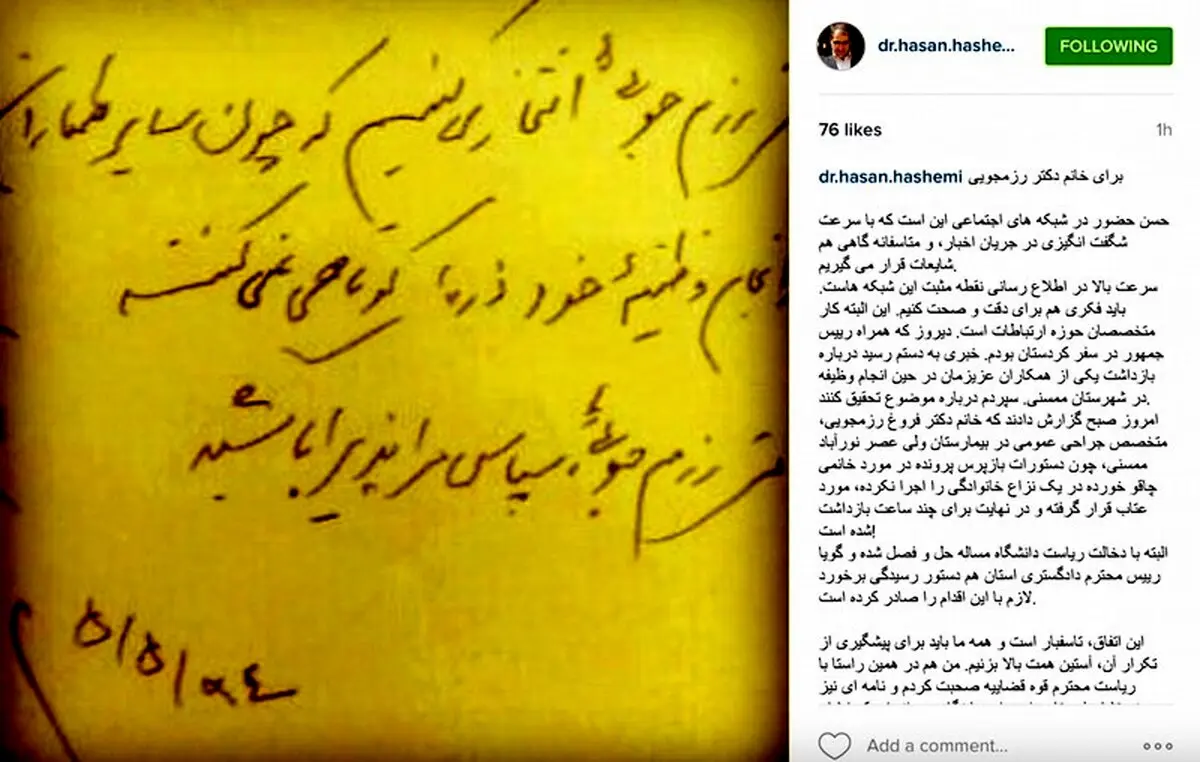 رزم جوئی انتظاری نیست که چون سایر همکاران
انجام وظیفهٔ خود ذره‌ای کوتاهی نمی‌کنند
رزم جوئی، سپاس مرا پذیرا باشید
۵/۵/۹٤
dr.hasan.hashe...
FOLLOWING
76 likes
1h
dr.hasan.hashemi برای خانم دکتر رزمجویی
حسن حضور در شبکه های اجتماعی این است که با سرعت
شگفت انگیزی در جریان اخبار، و متاسفانه گاهی هم
شایعات قرار می گیریم.
سرعت بالا در اطلاع رسانی نقطه مثبت این شبکه هاست.
باید فکری هم برای دقت و صحت کنیم. این البته کار
متخصصان حوزه ارتباطات است. دیروز که همراه رییس
جمهور در سفر کردستان بودم. خبری به دستم رسید درباره
بازداشت یکی از همکاران عزیزمان در حین انجام وظیفه
در شهرستان ممسنی. سپردم درباره موضوع تحقیق کنند.
امروز صبح گزارش دادند که خانم دکتر فروغ رزمجویی،
متخصص جراحی عمومی در بیمارستان ولی عصر نورآباد
ممسنی، چون دستورات بازپرس پرونده در مورد خانمی
چاقو خورده در یک نزاع خانوادگی را اجرا نکرده، مورد
عتاب قرار گرفته و در نهایت برای چند ساعت بازداشت
شده است!
البته با دخالت ریاست دانشگاه مساله حل و فصل شده و گویا
رییس محترم دادگستری استان هم دستور رسیدگی برخورد
لازم با این اقدام را صادر کرده است.
این اتفاق، تاسفبار است و همه ما باید برای پیشگیری از
تکرار آن، آستین همت بالا بزنیم. من هم در همین راستا با
ریاست محترم قوه قضاییه صحبت کردم و نامه ای نیز
Add a comment...